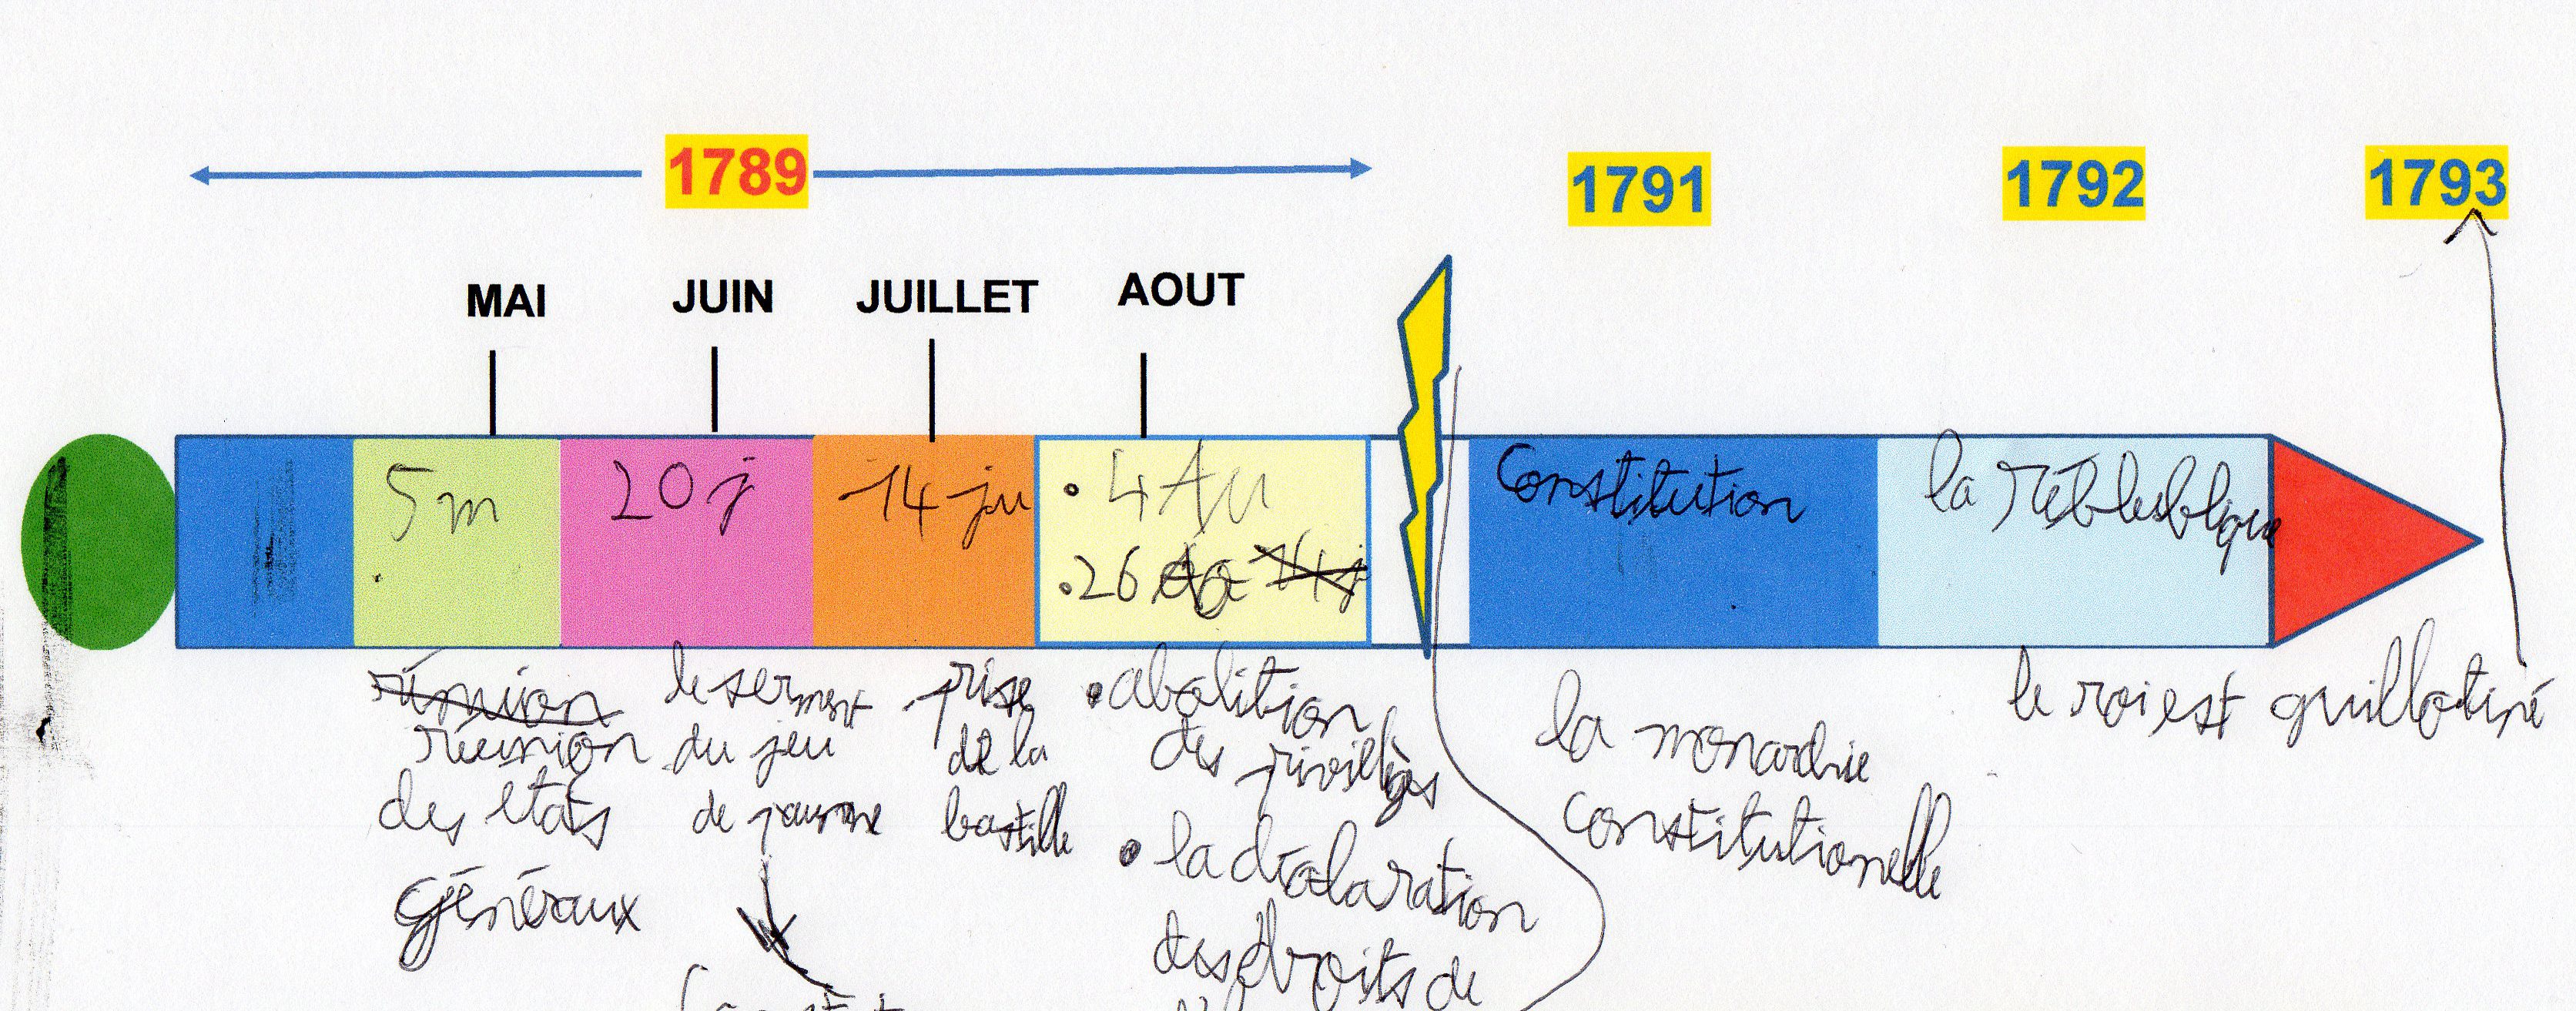 1789
1791
1792
1793
MAI
JUIN
JUILLET
AOUT
5m
20 j
14 ju
• 4 Au
• 26
Constitution
la rébleublique
réunion
des états
généraux
le serment
du jeu
de paume
prise
de la
bastille
• abolition
des privillèges
• la déclaration
des droits de
la monarchie
constitutionelle
le roi est guillotiné